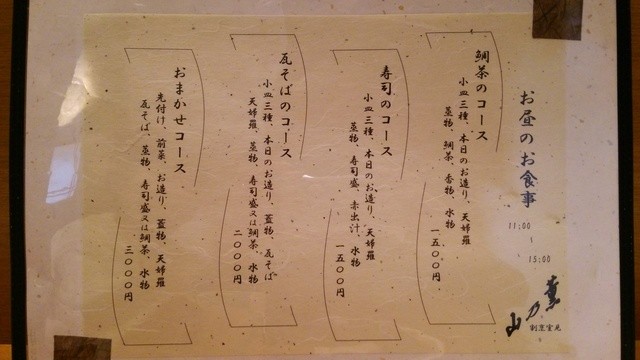 お昼のお食事
11:00
～
15:00
鯛茶のコース
小皿三種、本日のお造り、天婦羅
蒸物、鯛茶、香物、水物
一五〇〇円
寿司のコース
小皿三種、本日のお造り、天婦羅
蒸物、寿司盛、赤出汁、水物
一五〇〇円
瓦そばのコース
小皿三種、本日のお造り、蓋物、瓦そば
天婦羅、蒸物、寿司盛又は鯛茶、水物
二〇〇〇円
おまかせコース
先付け、前菜、お造り、蓋物、天婦羅
瓦そば、蒸物、寿司盛又は鯛茶、水物
三〇〇〇円